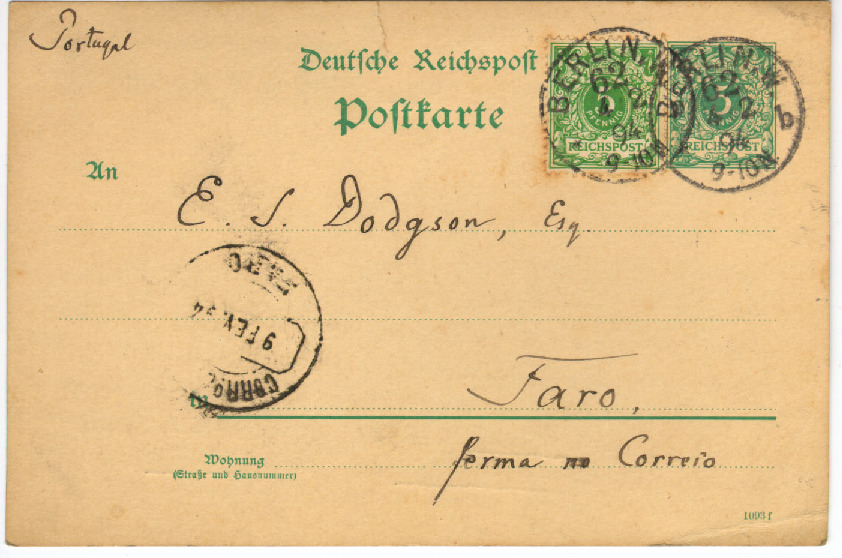 Portugal
Deutsche Reichspost
Postkarte
BERLIN, W.
62
2
94
9-10N
5
REICHSPOST
BERLIN, W.
62
2
b
94
9-10N
5
REICHSPOST
An
E. S. Dodgson, Esq.
FARO
9 FEV. 94
CORRO
Faro,
Wohnung
(Straße und Hausnummer)
ferma no Correio
1093 f